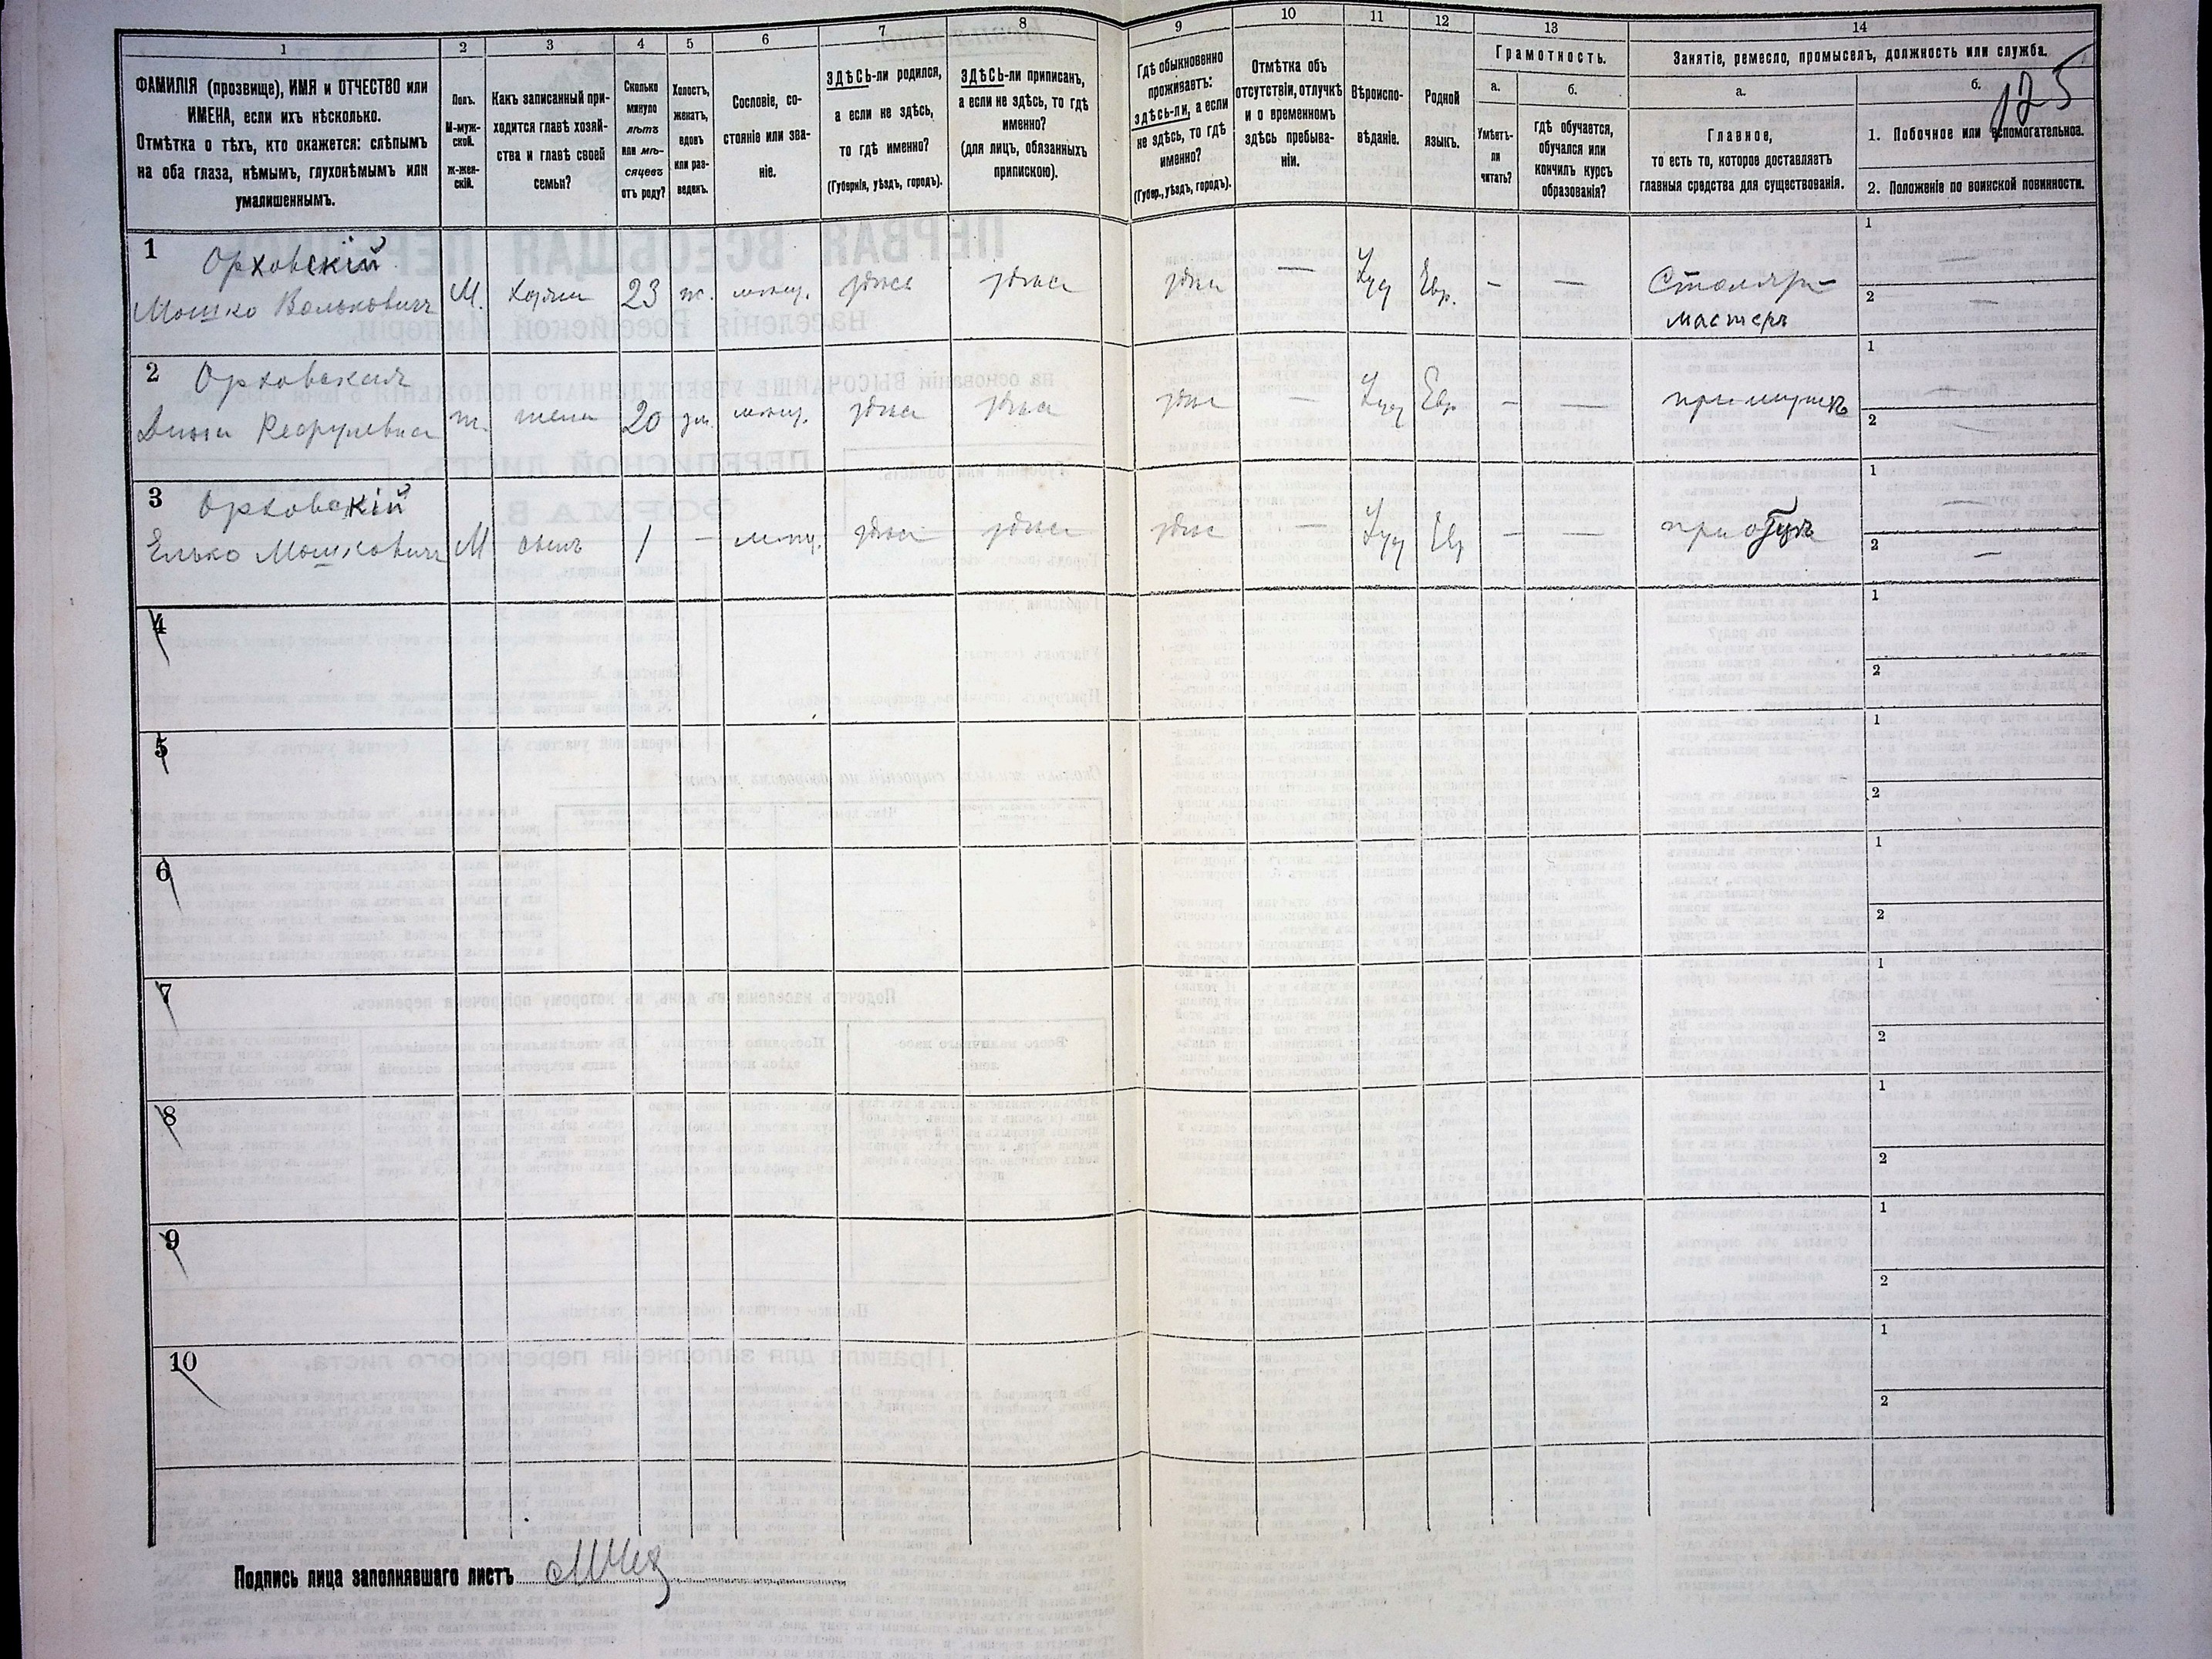 1 2 3 4 5 6 7 8 9 10 11 12 13 14
ФАМИЛІЯ (прозвище), ИМЯ и ОТЧЕСТВО или
ИМЕНА, если ихъ нѣсколько.
Отмѣтка о тѣхъ, кто окажется: слѣпымъ
на оба глаза, нѣмымъ, глухонѣмымъ или
умалишеннымъ.
Полъ.
М-муж-
ской.
ж-жен-
скій.
Какъ записанный при-
ходится главѣ хозяй-
ства и главѣ своей
семьи?
Сколько
минуло
лѣтъ
или мѣ-
сяцевъ
отъ роду?
Холостъ,
женатъ,
вдовъ
или раз-
веденъ.
Сословіе, со-
стояніе или зва-
ніе.
ЗДѢСЬ-ли родился,
а если не здѣсь,
то гдѣ именно?
(Губернія, уѣздъ, городъ).
ЗДѢСЬ-ли приписанъ,
а если не здѣсь, то гдѣ
именно?
(для лицъ, обязанныхъ
припискою).
Гдѣ обыкновенно
проживаетъ:
здѣсь-ли, а если
не здѣсь, то гдѣ
именно?
(Губер., уѣздъ, городъ).
Отмѣтка объ
отсутствіи, отлучкѣ
и о временномъ
здѣсь пребыва-
ніи.
Вѣроиспо-
вѣданіе.
Родной
языкъ.
Грамотность.
а.
Умѣетъ-
ли
читать?
б.
гдѣ обучается,
обучался или
кончилъ курсъ
образованія?
Занятіе, ремесло, промыселъ, должность или служба.
а.
Главное,
то есть то, которое доставляетъ
главныя средства для существованія.
б.
125
1. Побочное или вспомогательное.
2. Положеніе по воинской повинности.
1 Орховскій
Мошко Вольковичъ М. 23 ж. здѣсь здѣсь здѣсь — Іуд Евр. - — Столяръ-
мастеръ
1 —
2 —
2 Орховская
ж. жена 20 зм. здѣсь здѣсь здѣсь — Іуд Евр - — при мужѣ
1 —
2 —
3 Орховскій
Елько Мошковичъ М сынъ 1 - здѣсь здѣсь здѣсь — Іуд Евр — — при отцѣ
1 —
2 —
4
1
2
5
1
2
6
1
2
7
1
2
8
1
2
9
1
2
10
1
2
Подпись лица заполнявшаго листъ